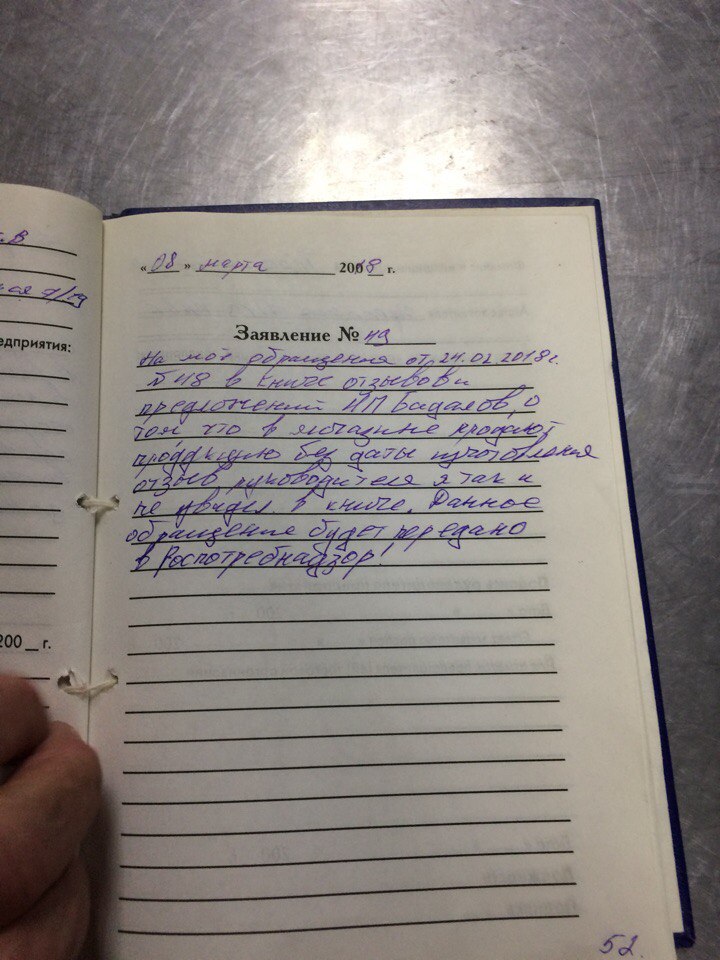 .В
ная 7/19
едприятия:
200 г.
«08» марта 2018 г.
Заявление № 49
На моё обращения от 24.02.2018г.
№48 в книге отзывов и
предложений ИП Бадалов, о
том что в магазине продают
продукцию без даты изготовления
отзыв руководителя я так и
не увидел в книге. Данное
обращение будет передано
в Роспотребнадзор!
52.